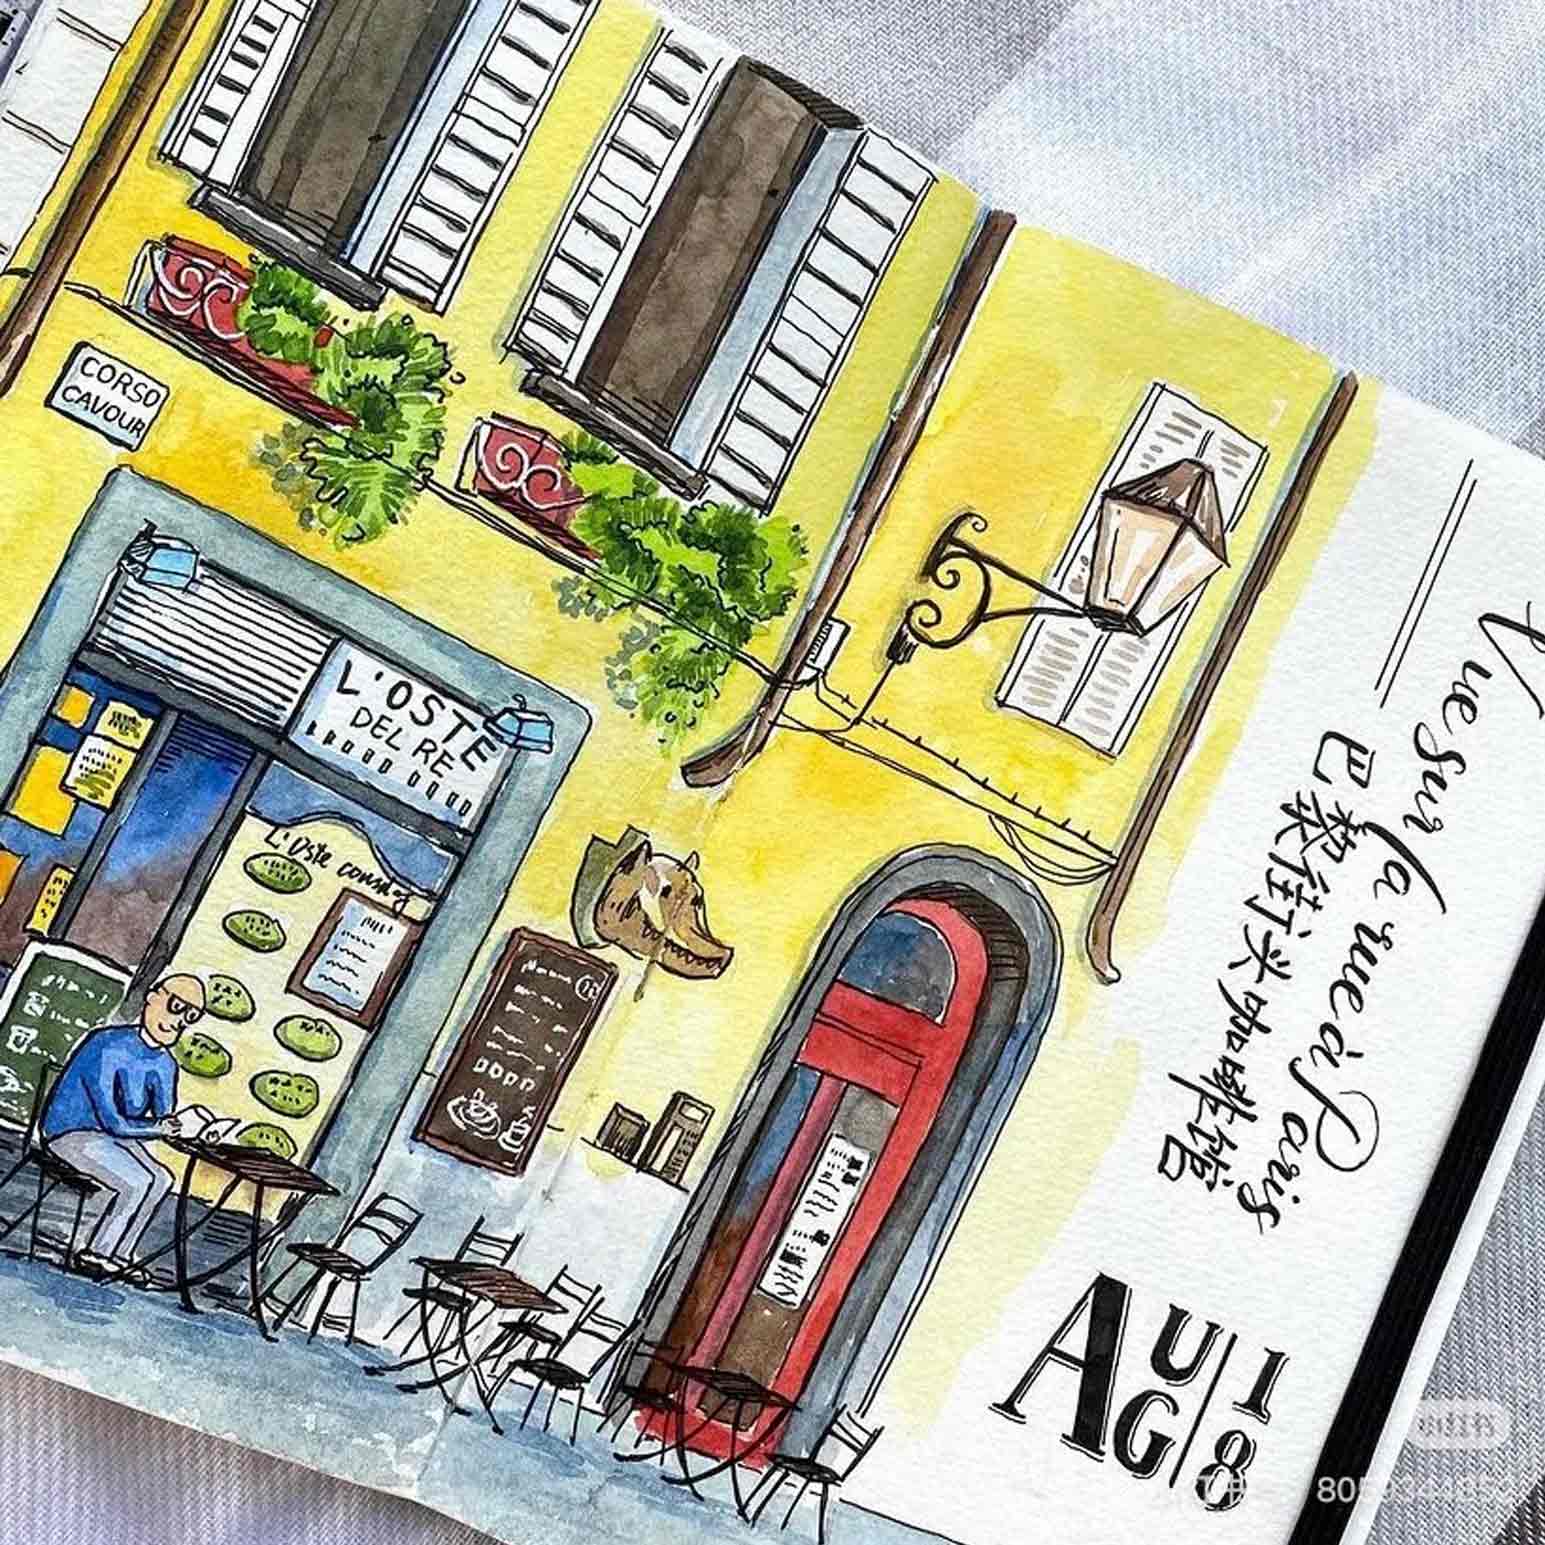 CORSO
CAVOUR
L'OSTE
DEL RE
L'Oste
Vue sur la rue à Paris
巴黎街头咖啡馆
AUG 18